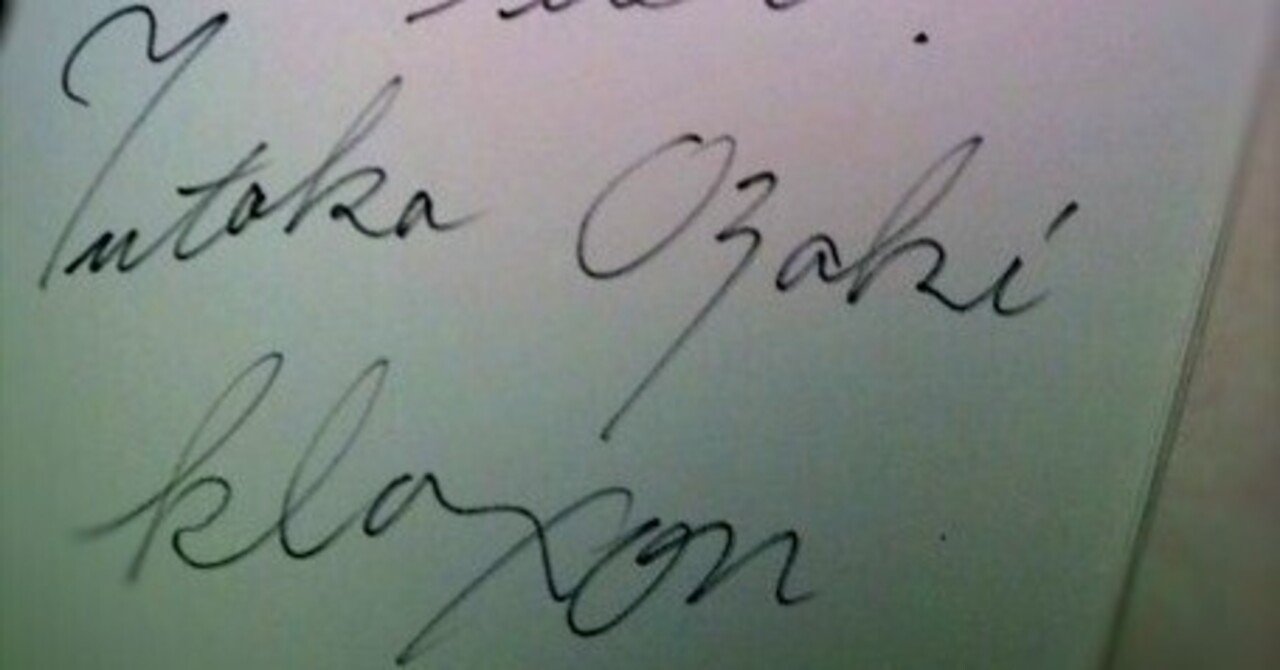 Yutaka Ozaki
klaxon